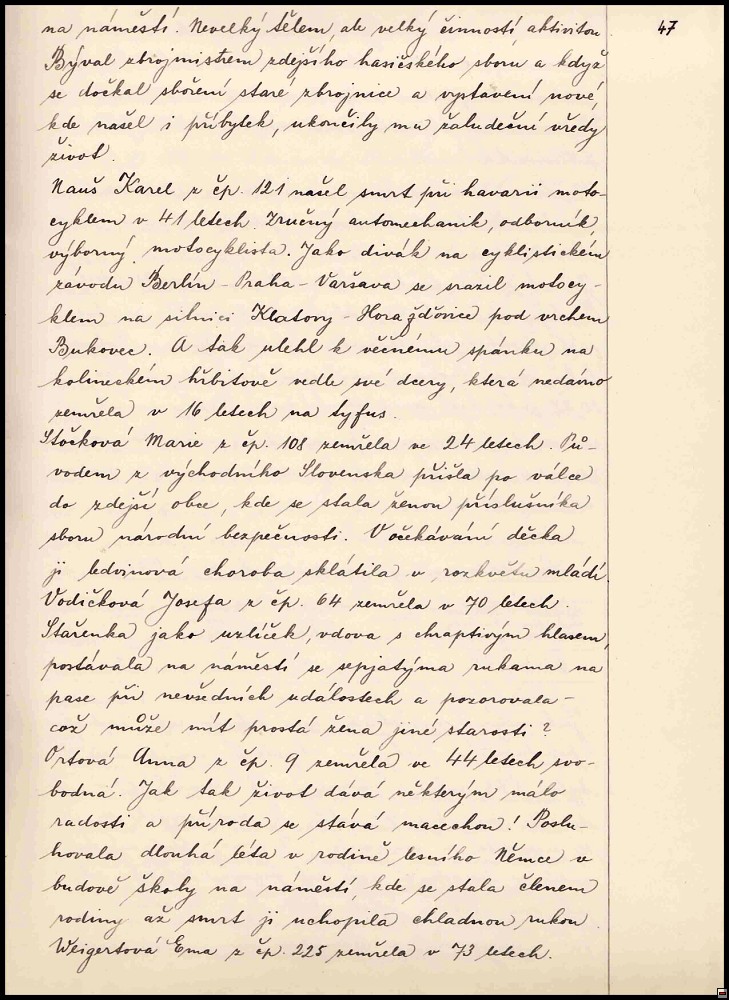 na náměstí. Nevelký tělem, ale velký činností, aktivitou.
47
Býval zbrojmistrem zdejšího hasičského sboru a když
se dočkal sboření staré zbrojnice a vystavení nové,
kde našel i příbytek, ukončily mu žaludeční vředy
život.
Nauš Karel z čp. 121 našel smrt při havarii moto-
cyklem v 41 letech. Zručný automechanik, odborník,
výborný motocyklista. Jako divák na cyklistickém
závodu Berlín - Praha - Varšava se srazil motocy-
klem na silnici Klatovy - Horažďovice pod vrchem
Bukovec. A tak ulehl k věčnému spánku na
kolineckém hřbitově vedle své dcery, která nedávno
zemřela v 16 letech na tyfus.
Stočková Marie z čp. 108 zemřela ve 24 letech. Pů-
vodem z východního Slovenska přišla po válce
do zdejší obce, kde se stala ženou příslušníka
sboru národní bezpečnosti. V očekávání děcka
ji ledvinová choroba sklátila v rozkvětu mládí.
Vodičková Josefa z čp. 64 zemřela v 70 letech.
Stařenka jako uzlíček, vdova s chraptivým hlasem,
postávala na náměstí se sepjatýma rukama na
pase při nevšedních událostech a pozorovala -
což může mít prostá žena jiné starosti?
Ortová Anna z čp. 9 zemřela ve 44 letech svo-
bodná. Jak tak život dává některým málo
radosti a příroda se stává macechou! Poslu-
hovala dlouhá léta v rodině lesního Němce v
budově školy na náměstí, kde se stala členem
rodiny až smrt ji uchopila chladnou rukou.
Weigertová Ema z čp. 225 zemřela v 73 letech.